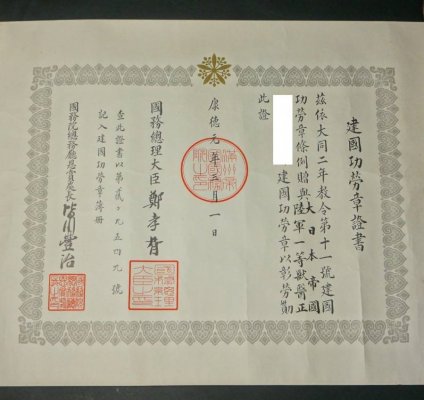 建國功勞章證書
茲依大同二年教令第十一號建國
功勞章條例贈與大日本帝國陸軍一等獸醫正
建國功勞章以彰勞勛
此證
康德元年三月一日
國務總理大臣 鄭孝胥
查此證書以第貳九五四九號
記入建國功勞章簿冊
國務院總務廳恩賞處長 皆川豐治